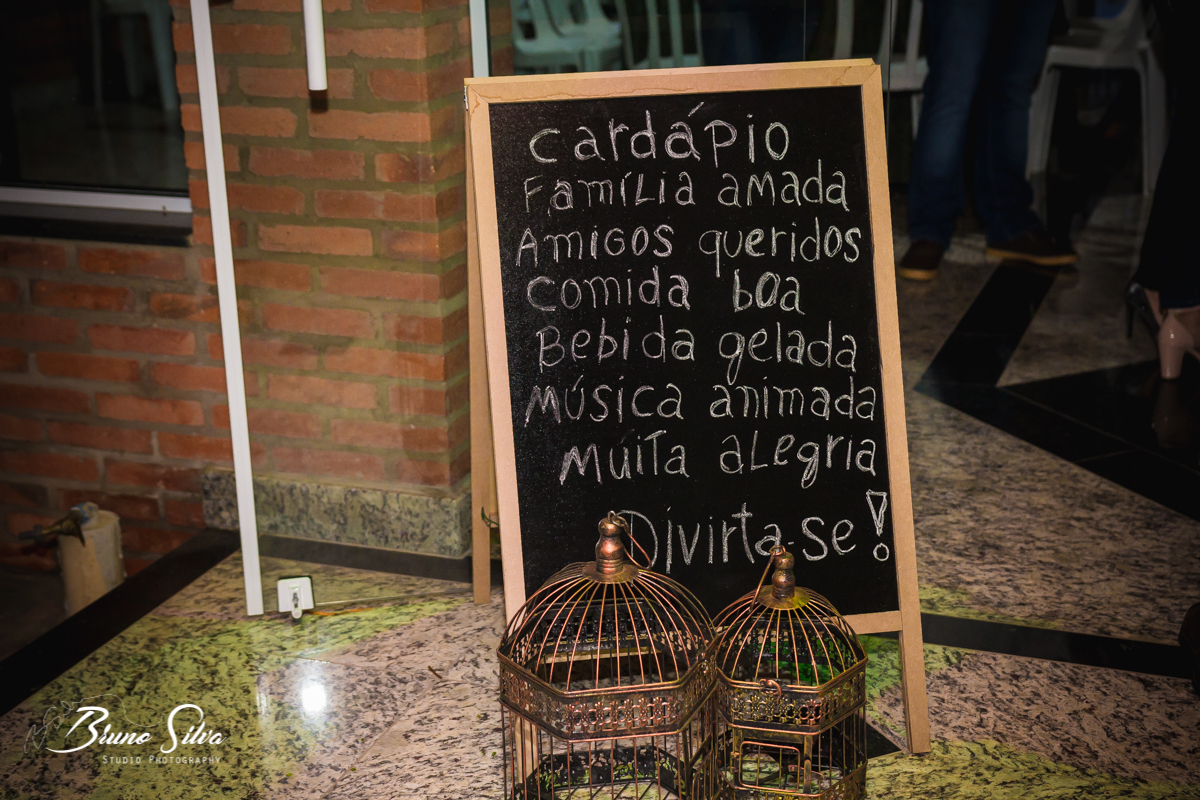 cardápio
Família amada
Amigos queridos
Comida boa
Bebida gelada
Música animada
Múita aLegria
Divirta-se!
Bruno Silva
Studio Photography